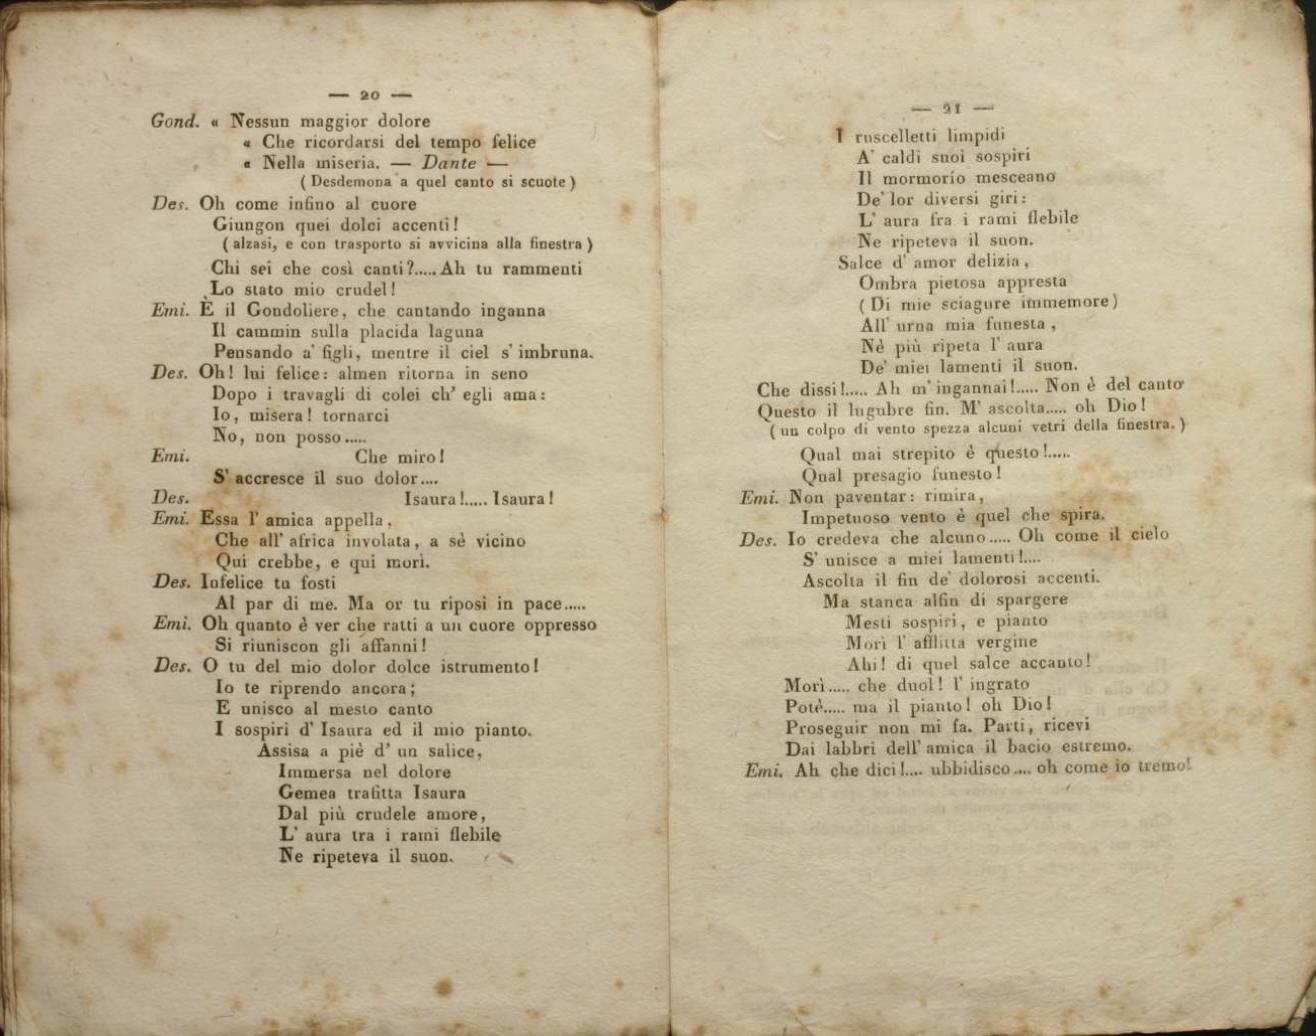 — 20 —
Gond. « Nessun maggior dolore
« Che ricordarsi del tempo felice
« Nella miseria. — Dante —
( Desdemona a quel canto si scuote )
Des. Oh come infino al cuore
Giungon quei dolci accenti !
( alzasi, e con trasporto si avvicina alla finestra )
Chi sei che così canti ?..... Ah tu rammenti
Lo stato mio crudel !
Emi. È il Gondoliere, che cantando inganna
Il cammin sulla placida laguna
Pensando a' figli, mentre il ciel s' imbruna.
Des. Oh ! lui felice: almen ritorna in seno
Dopo i travagli di colei ch' egli ama:
Io, misera ! tornarci
No, non posso .....
Emi. Che miro !
S' accresce il suo dolor....
Des. Isaura !..... Isaura !
Emi. Essa l' amica appella,
Che all' africa involata, a sè vicino
Qui crebbe, e qui morì.
Des. Infelice tu fosti
Al par di me. Ma or tu riposi in pace.....
Emi. Oh quanto è ver che ratti a un cuore oppresso
Si riuniscon gli affanni !
Des. O tu del mio dolor dolce istrumento !
Io te riprendo ancora ;
E unisco al mesto canto
I sospiri d' Isaura ed il mio pianto.
Assisa a piè d' un salice,
Immersa nel dolore
Gemea trafitta Isaura
Dal più crudele amore,
L' aura tra i rami flebile
Ne ripeteva il suon.
— 21 —
I ruscelletti limpidi
A' caldi suoi sospiri
Il mormorío mesceano
De' lor diversi giri :
L' aura fra i rami flebile
Ne ripeteva il suon.
Salce d' amor delizia,
Ombra pietosa appresta
( Di mie sciagure immemore )
All' urna mia funesta ,
Nè più ripeta l' aura
De' miei lamenti il suon.
Che dissi !..... Ah m' ingannai !..... Non è del canto
Questo il lugubre fin. M' ascolta..... oh Dio !
( un colpo di vento spezza alcuni vetri della finestra. )
Qual mai strepito è questo !.....
Qual presagio funesto !
Emi. Non paventar : rimira,
Impetuoso vento è quel che spira.
Des. Io credeva che alcuno ..... Oh come il cielo
S' unisce a miei lamenti !....
Ascolta il fin de' dolorosi accenti.
Ma stanca alfin di spargere
Mesti sospiri, e pianto
Morì l' afflitta vergine
Ahi ! di quel salce accanto !
Morì ..... che duol ! l' ingrato
Potè..... ma il pianto ! oh Dio !
Proseguir non mi fa. Parti, ricevi
Dai labbri dell' amica il bacio estremo.
Emi. Ah che dici !.... ubbidisco .... oh come io tremo!